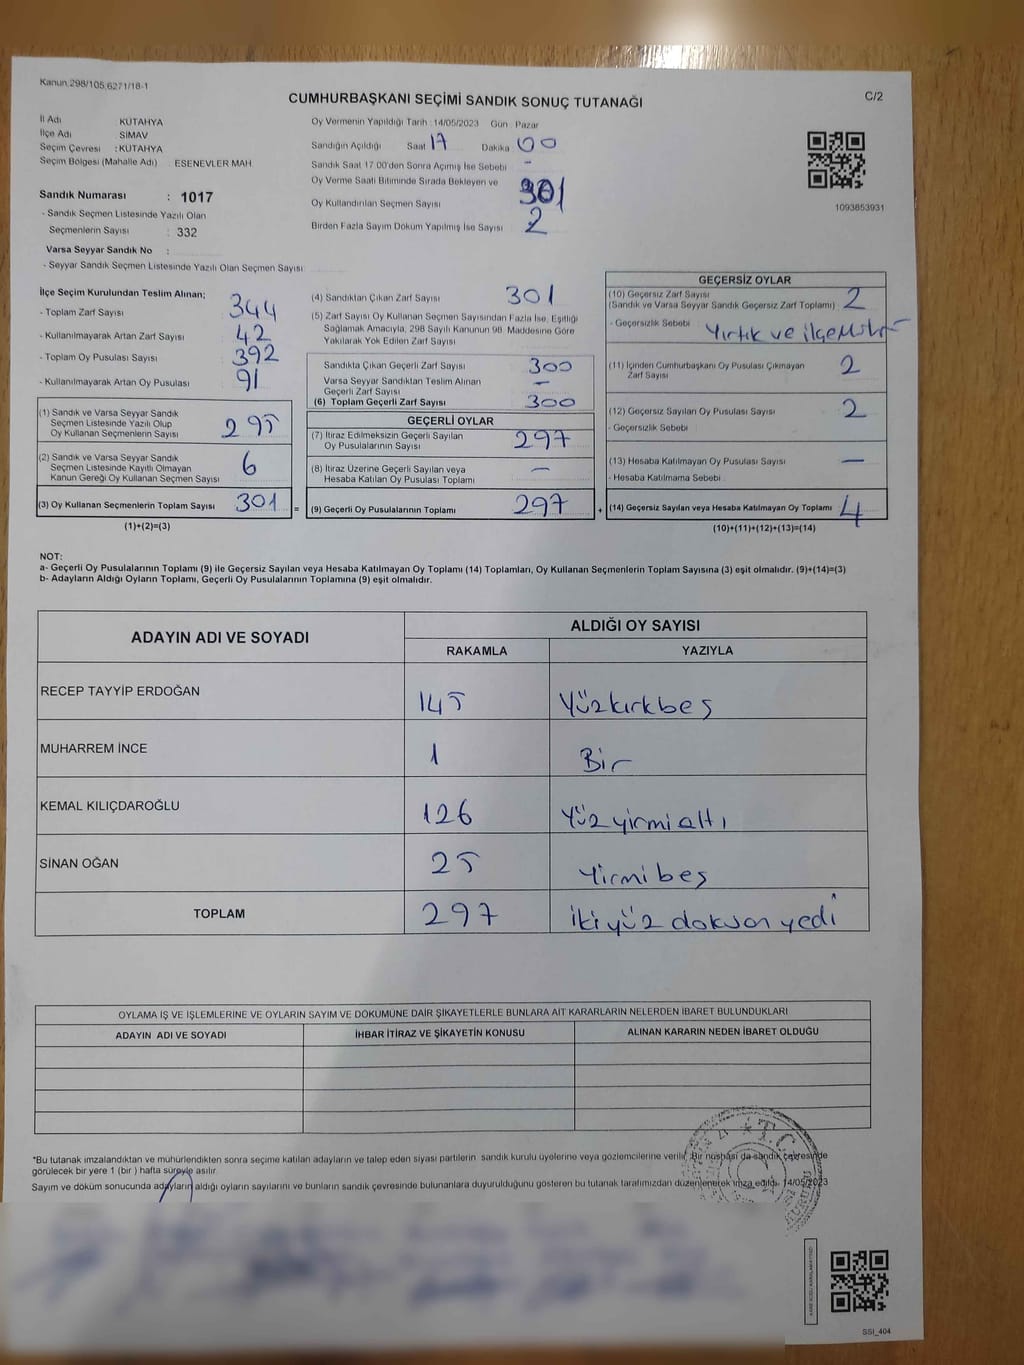 Kanun 298/105,6271/18-1
CUMHURBAŞKANI SEÇİMİ SANDIK SONUÇ TUTANAĞI
C/2
İl Adı : KÜTAHYA
İlçe Adı : SİMAV
Seçim Çevresi : KÜTAHYA
Seçim Bölgesi (Mahalle Adı) : ESENEVLER MAH
Sandık Numarası : 1017
- Sandık Seçmen Listesinde Yazılı Olan
Seçmenlerin Sayısı : 332
Varsa Seyyar Sandık No :
- Seyyar Sandık Seçmen Listesinde Yazılı Olan Seçmen Sayısı:
Oy Vermenin Yapıldığı Tarih : 14/05/2023 Gün : Pazar
Sandığın Açıldığı Saat 17 Dakika 00
Sandık Saat 17.00'den Sonra Açılmış İse Sebebi -
Oy Verme Saati Bitiminde Sırada Bekleyen ve
Oy Kullandırılan Seçmen Sayısı 301
Birden Fazla Sayım Döküm Yapılmış İse Sayısı 2
1093853931
İlçe Seçim Kurulundan Teslim Alınan;
- Toplam Zarf Sayısı 344
- Kullanılmayarak Artan Zarf Sayısı 42
- Toplam Oy Pusulası Sayısı 392
- Kullanılmayarak Artan Oy Pusulası 91
(1) Sandık ve Varsa Seyyar Sandık
Seçmen Listesinde Yazılı Olup
Oy Kullanan Seçmenlerin Sayısı 295
(2) Sandık ve Varsa Seyyar Sandık
Seçmen Listesinde Kayıtlı Olmayan
Kanun Gereği Oy Kullanan Seçmen Sayısı 6
(3) Oy Kullanan Seçmenlerin Toplam Sayısı 301 =
(1)+(2)=(3)
(4) Sandıktan Çıkan Zarf Sayısı 301
(5) Zarf Sayısı Oy Kullanan Seçmen Sayısından Fazla İse, Eşitliği
Sağlamak Amacıyla, 298 Sayılı Kanunun 98. Maddesine Göre
Yakılarak Yok Edilen Zarf Sayısı
Sandıkta Çıkan Geçerli Zarf Sayısı 300
Varsa Seyyar Sandıktan Teslim Alınan
Geçerli Zarf Sayısı -
(6) Toplam Geçerli Zarf Sayısı 300
GEÇERLİ OYLAR
(7) İtiraz Edilmeksizin Geçerli Sayılan
Oy Pusulalarının Sayısı 297
(8) İtiraz Üzerine Geçerli Sayılan veya
Hesaba Katılan Oy Pusulası Toplamı -
(9) Geçerli Oy Pusulalarının Toplamı 297 +
GEÇERSİZ OYLAR
(10) Geçersiz Zarf Sayısı 2
(Sandık ve Varsa Seyyar Sandık Geçersiz Zarf Toplamı)
- Geçersizlik Sebebi Yırtık ve
(11) İçinden Cumhurbaşkanı Oy Pusulası Çıkmayan
Zarf Sayısı 2
(12) Geçersiz Sayılan Oy Pusulası Sayısı 2
- Geçersizlik Sebebi :
(13) Hesaba Katılmayan Oy Pusulası Sayısı -
- Hesaba Katılmama Sebebi
(14) Geçersiz Sayılan veya Hesaba Katılmayan Oy Toplamı 4
(10)+(11)+(12)+(13)=(14)
NOT:
a- Geçerli Oy Pusulalarının Toplamı (9) ile Geçersiz Sayılan veya Hesaba Katılmayan Oy Toplamı (14) Toplamları, Oy Kullanan Seçmenlerin Toplam Sayısına (3) eşit olmalıdır. (9)+(14)=(3)
b- Adayların Aldığı Oyların Toplamı, Geçerli Oy Pusulalarının Toplamına (9) eşit olmalıdır.
ADAYIN ADI VE SOYADI
ALDIĞI OY SAYISI
RAKAMLA YAZIYLA
RECEP TAYYİP ERDOĞAN 145 Yüzkırkbeş
MUHARREM İNCE 1 Bir
KEMAL KILIÇDAROĞLU 126 Yüzyirmialtı
SİNAN OĞAN 25 Yirmibeş
TOPLAM 297 ikiyüz doksanyedi
OYLAMA İŞ VE İŞLEMLERİNE VE OYLARIN SAYIM VE DÖKÜMÜNE DAİR ŞİKAYETLERLE BUNLARA AİT KARARLARIN NELERDEN İBARET BULUNDUKLARI
ADAYIN ADI VE SOYADI İHBAR İTİRAZ VE ŞİKAYETİN KONUSU ALINAN KARARIN NEDEN İBARET OLDUĞU
*Bu tutanak imzalandıktan ve mühürlendikten sonra seçime katılan adayların ve talep eden siyasi partilerin sandık kurulu üyelerine veya gözlemcilerine verilir. Bir nüshası da sandık çevresinde
görülecek bir yere 1 (bir ) hafta süreyle asılır.
Sayım ve döküm sonucunda adayların aldığı oyların sayılarını ve bunların sandık çevresinde bulunanlara duyurulduğunu gösteren bu tutanak tarafımızdan düzenlenerek imza edildi. 14/05/2023
T.C.
SSI_404